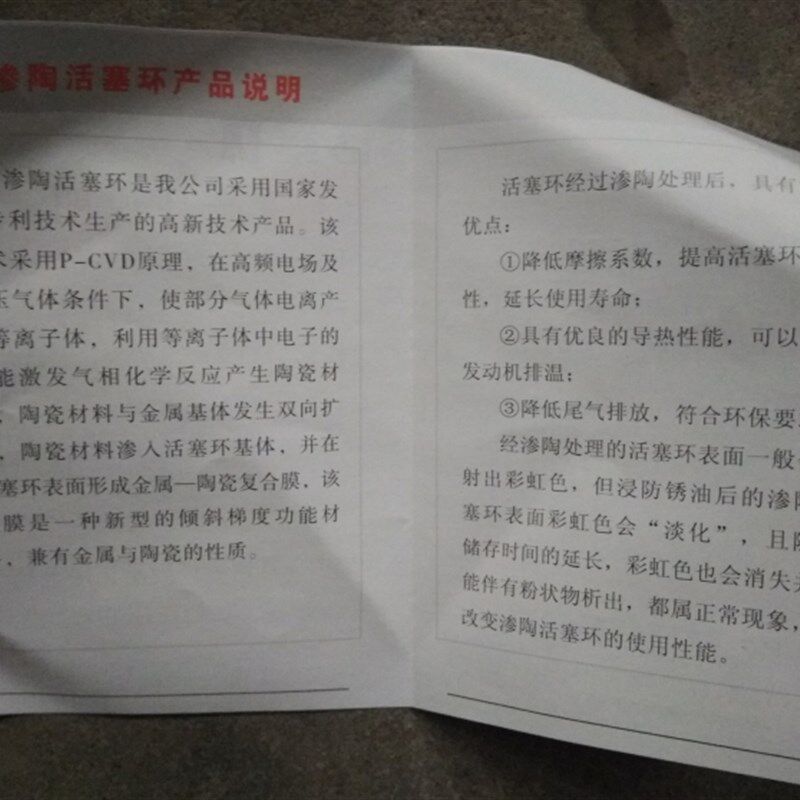 渗陶活塞环产品说明
渗陶活塞环是我公司采用国家发
利技术生产的高新技术产品。该
采用P-CVD原理，在高频电场及
气体条件下，使部分气体电离产
等离子体，利用等离子体中电子的
能激发气相化学反应产生陶瓷材
，陶瓷材料与金属基体发生双向扩
，陶瓷材料渗入活塞环基体，并在
塞环表面形成金属—陶瓷复合膜，该
膜是一种新型的倾斜梯度功能材
，兼有金属与陶瓷的性质。
活塞环经过渗陶处理后，具有
优点：
①降低摩擦系数，提高活塞环
性，延长使用寿命；
②具有优良的导热性能，可以
发动机排温；
③降低尾气排放，符合环保要
经渗陶处理的活塞环表面一般
射出彩虹色，但浸防锈油后的渗陶
塞环表面彩虹色会“淡化”，且随
储存时间的延长，彩虹色也会消失
能伴有粉状物析出，都属正常现象，
改变渗陶活塞环的使用性能。